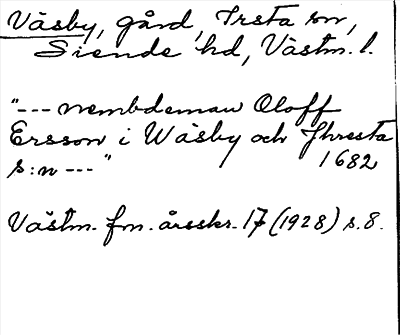 Väsby, gård, Irsta sn,
Siende hd, Västm. l.
"--- nembdeman Oloff
Ersson i Wäsby och Jhresta
s:n ---" 1682
Västm. fm. årsskr. 17 (1928) s. 8.